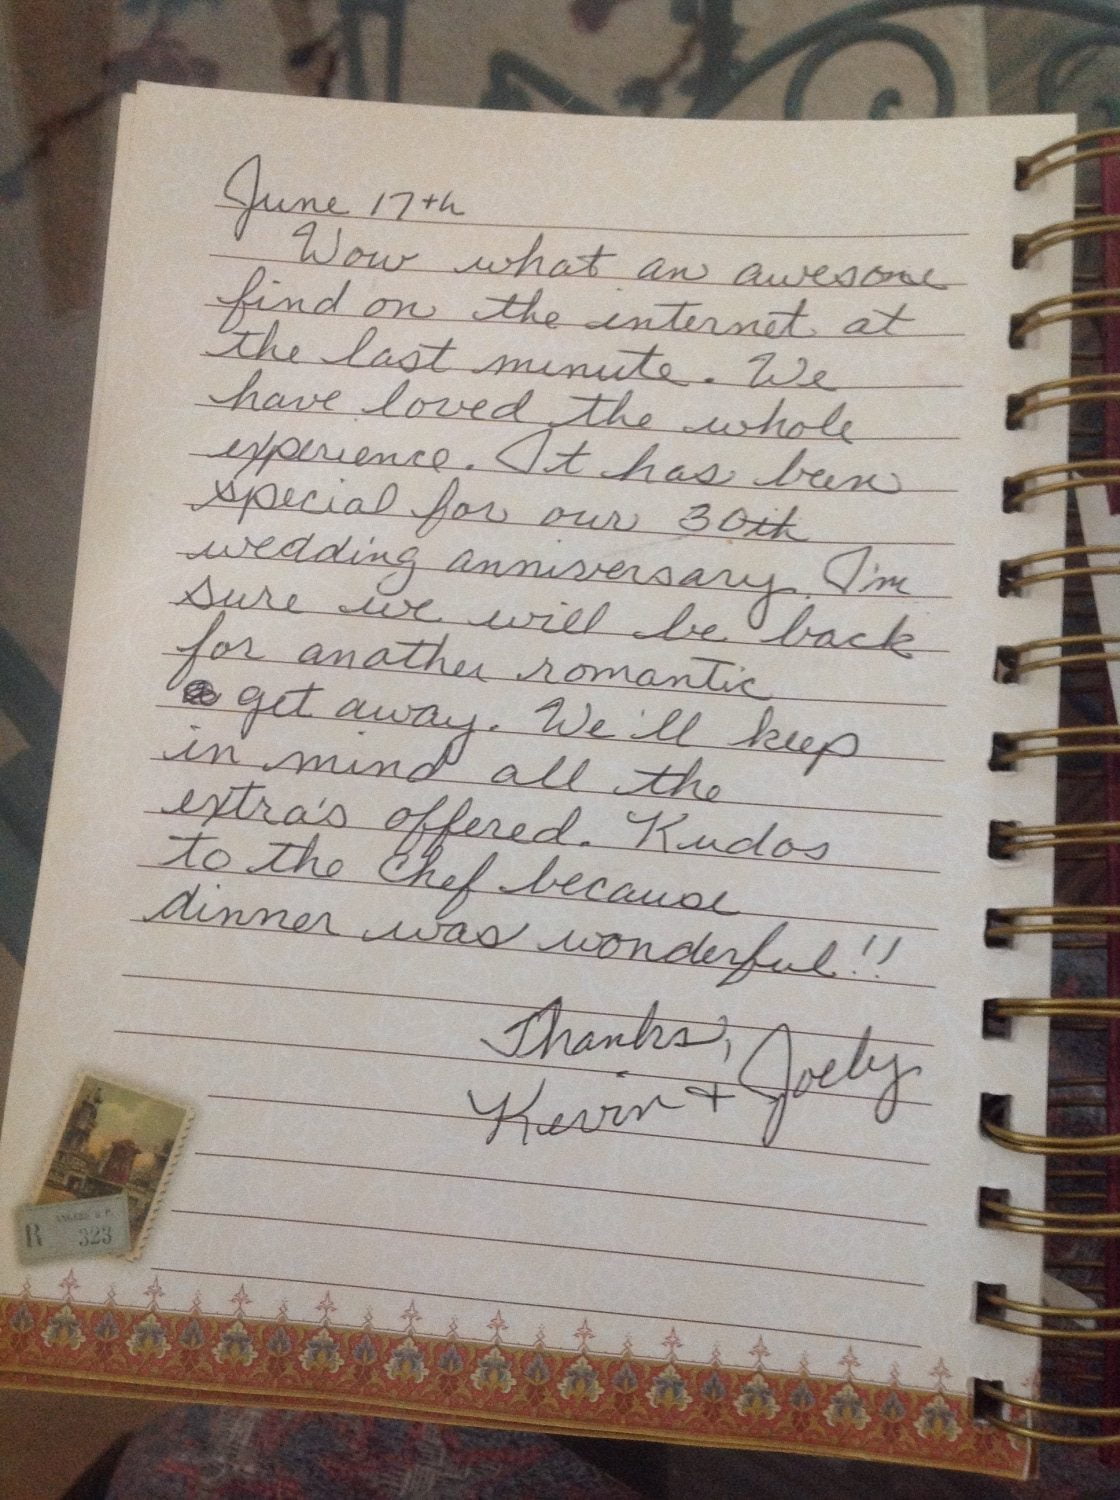 June 17th
Wow what an awesome
find on the internet at
the last minute. We
have loved the whole
experience. It has been
special for our 30th
wedding anniversary. I'm
sure we will be back
for another romantic
get away. We'll keep
in mind all the
extra's offered. Kudos
to the Chef because
dinner was wonderful!!
Thanks,
Kevin + Joely
R
323